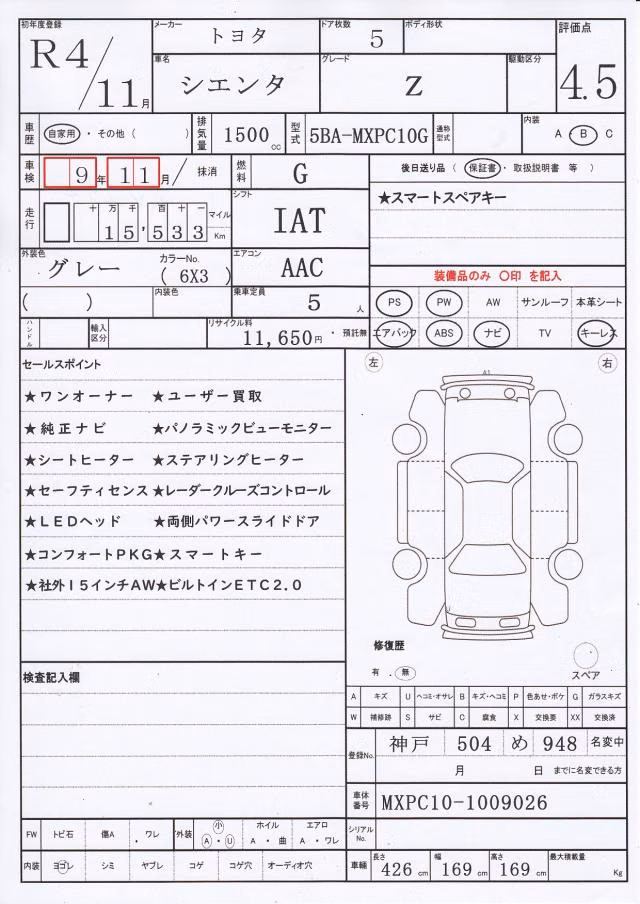 初年度登録 R4/11月
メーカー トヨタ
ドア枚数 5
ボディ形状
評価点 4.5
車名 シエンタ
グレード Z
駆動区分
車歴 自家用 ・ その他 ( )
排気量 1500cc
型式 5BA-MXPC10G
通称型式
内装 A ・ B C
車検 9年11月/ 抹消
燃料 G
後日送り品 ( 保証書 ・ 取扱説明書 等 )
★スマートスペアキー
走行 十万千百十一 15,533 マイル Km
シフト IAT
外装色 グレー
カラーNo. ( 6X3 )
エアコン AAC
装備品のみ 〇印 を記入
( )
内装色
乗車定員 5人
PS PW AW サンルーフ 本革シート
ハンドル
輸入区分
リサイクル料 11,650円 ・ 預託無
エアバック ABS ナビ TV キーレス
セールスポイント
★ワンオーナー ★ユーザー買取
★純正ナビ ★パノラミックビューモニター
★シートヒーター ★ステアリングヒーター
★セーフティセンス★レーダークルーズコントロール
★LEDヘッド ★両側パワースライドドア
★コンフォートPKG★スマートキー
★社外15インチAW★ビルトインETC2.0
左 右
A1
修復歴
有 . 無
スペア
検査記入欄
A キズ U ヘコミ・オサレ B キズ・ヘコミ P 色あせ・ボケ G ガラスキズ
W 補修跡 S サビ C 腐食 X 交換要 XX 交換済
登録No. 神戸 504 め 948 名変中
月 日 までに名変できる方
車体番号 MXPC10-1009026
FW トビ石 傷A ・ ワレ
外装 小 A ・ U ホイル A ・ 曲 エアロ A ・ ワレ
シリアルNo.
内装 ヨゴレ シミ ヤブレ コゲ コゲ穴 オーディオ穴
車輛 長さ 426cm 幅 169cm 高さ 169cm 最大積載量 Kg